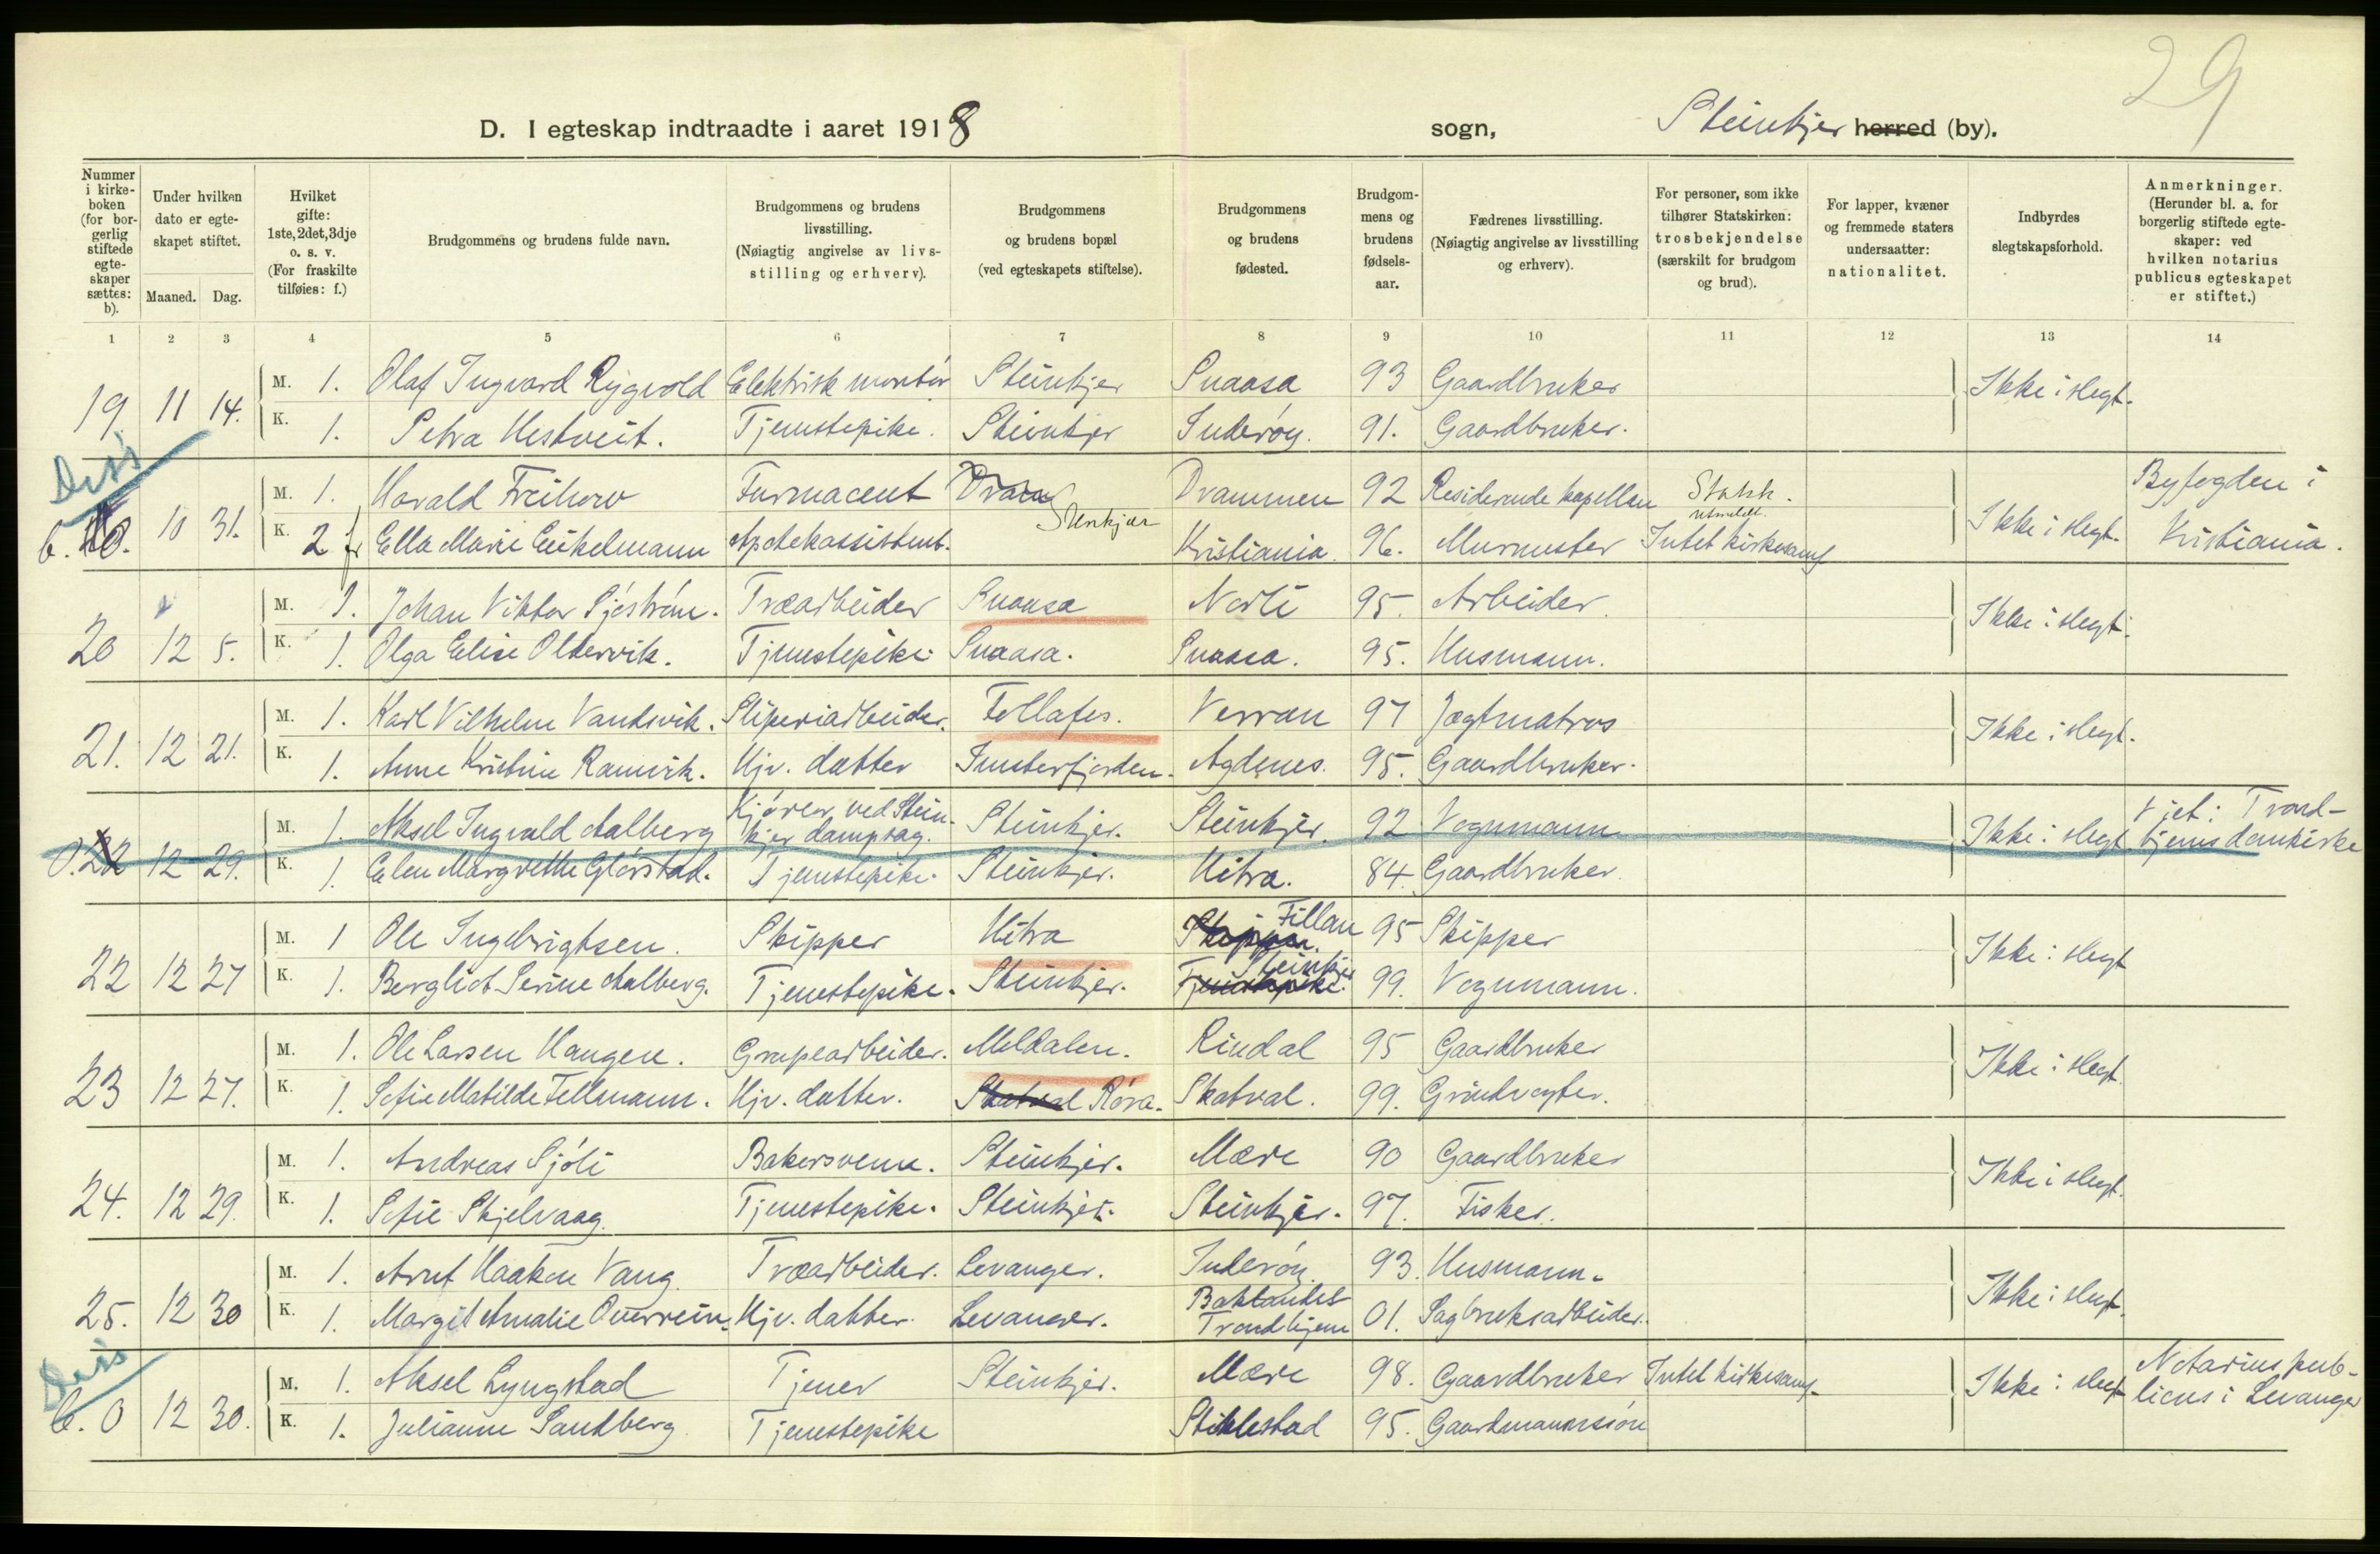 29
D. I egteskap indtraadte i aaret 1918 sogn, Steinkjer herred (by).
Nummer i kirkeboken (for borgerlig stiftede egteskaper sættes: b).
Under hvilken dato er egteskapet stiftet.
Maaned. Dag.
Hvilket gifte: 1ste, 2det, 3dje o. s. v. (For fraskilte tilføies: f.)
Brudgommens og brudens fulde navn.
Brudgommens og brudens livsstilling. (Nøiagtig angivelse av livsstilling og erhverv).
Brudgommens og brudens bopæl (ved egteskapets stiftelse).
Brudgommens og brudens fødested.
Brudgommens og brudens fødselsaar.
Fædrenes livsstilling. (Nøiagtig angivelse av livsstilling og erhverv).
For personer, som ikke tilhører Statskirken: trosbekjendelse (særskilt for brudgom og brud).
For lapper, kvæner og fremmede staters undersaatter: nationalitet.
Indbyrdes slegtskapsforhold.
Anmerkninger. (Herunder bl. a. for borgerlig stiftede egteskaper: ved hvilken notarius publicus egteskapet er stiftet.)
1 2 3 4 5 6 7 8 9 10 11 12 13 14
M. 1. Olaf Ingvard Rygvold Elektrisk montør Steinkjer Snaasa 93 Gaardbruker
19 11 14. Ikke i slegt.
K. 1. Petra Hestveit. Tjenestepike. Steinkjer Inderøy. 91. Gaardbruker.
Diss
M. 1. Harald Freihow Farmaceut Dramen 92 Residerende kapellan Statsk. Byfogden i
b. 10 31. Stenkjær utmeldt. Ikke i slegt. Kristiania.
K. 2 fr Ella Marie Eickelmann Apotekassistent. Kristiania. 96. Murmester Intet kirkesamf
M. 1. Johan Viktor Sjöström. Træarbeider Snaasa Norli 95. Arbeider.
20 12 5. Ikke i slegt.
K. 1. Olga Elise Oldervik. Tjenestepike Snaasa. Snaasa. 95. Husmann.
M. 1. Karl Vilhelm Vandsvik. Sliperiarbeider. Follafos. Verran 97 Jægtmatros
21. 12 21. Ikke i slegt.
K. 1. Anne Kristine Ramvik. Hjv. datter Imsterfjorden. Agdenes. 95. Gaardbruker.
M. 1. Aksel Ingvald Aalberg Kjører ved Steinkjer dampsag. Steinkjer. Steinkjer. 92 Vognmann
0.22 12 29. Ikke i slegt Viet i Trondhjems domkirke
K. 1. Elen Margrethe Glørstad. Tjenestepike. Steinkjer. Hitra. 84. Gaardbruker.
M. 1 Ole Ingebrigtsen. Skipper Hitra Skipper. Fillan 95 Skipper
22 12 27 Ikke i slegt
K. 1. Bergliot Serine Aalberg. Tjenestepike. Steinkjer. Tjenestepike. Steinkjer 99. Vognmann.
M. 1. Ole Larsen Haugen. Grupearbeider. Meldalen. Rindal 95 Gaardbruker
23 12 27. Ikke i slegt.
K. 1. Sofie Matilde Fellmann. Hjv. datter. Skatval Røra. Skatval. 99. Grindvogter.
M. 1. Andreas Sjøli Bakersvenn. Steinkjer. Mære 90 Gaardbruker
24. 12 29. Ikke i slegt.
K. 1. Sofie Skjelvaag. Tjenestepike. Steinkjer. Steinkjer. 97. Fisker.
M. 1. Arnt Haakon Vang Træarbeider. Levanger. Inderøy. 93. Husmann.
25. 12 30 Ikke i slegt.
K. 1. Margit Amalie Overrein. Hjv. datter. Levanger. Baklandet Trondhjem 01. Sagbruksarbeider.
Diss
M. 1. Aksel Lyngstad Tjener Steinkjer. Mære 98. Gaardbruker Intet kirkesamf. Notarius publicus i Levanger
b. 0 12 30. Ikke i slegt
K. 1. Julianne Sandberg. Tjenestepike Stiklestad 95.